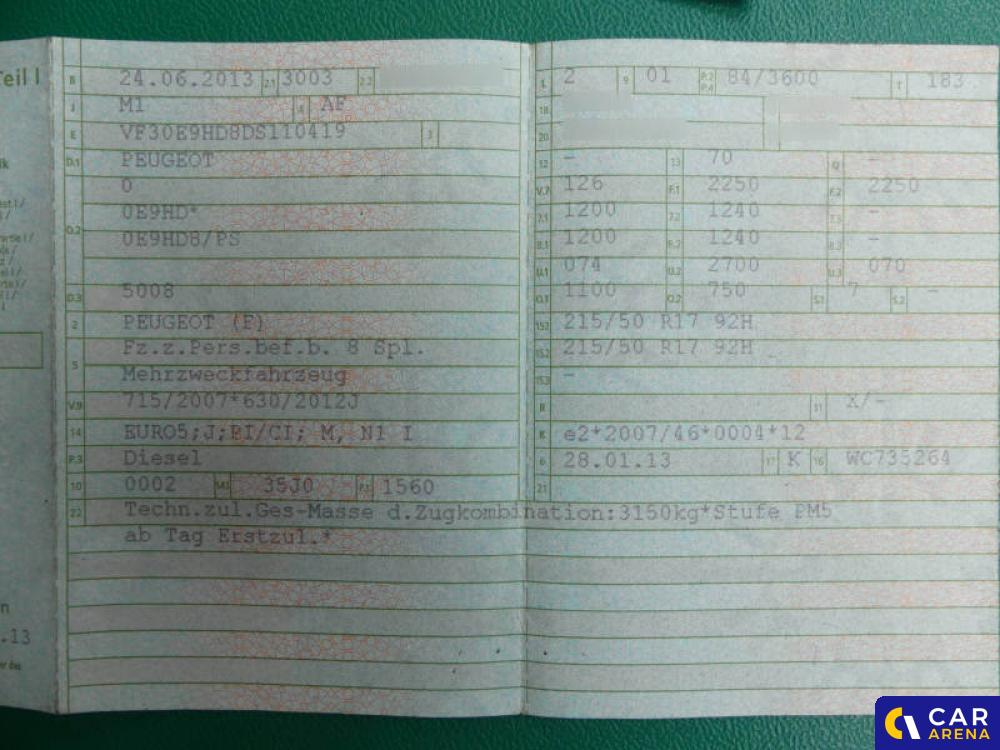 Teil I
B 24.06.2013 2.1 3003 2.2
J M1 4 AF
E VF30E9HD8DS110419 3
D.1 PEUGEOT
0
D.2 0E9HD*
0E9HD8/PS
D.3 5008
2 PEUGEOT (F)
5 Fz.z.Pers.bef.b. 8 Spl.
Mehrzweckfahrzeug
V.9 715/2007*630/2012J
14 EURO5;J;PI/CI; M, N1 I
P.3 Diesel
10 0002 14.1 35J0 P.1 1560
22 Techn.zul.Ges-Masse d.Zugkombination:3150kg*Stufe PM5
ab Tag Erstzul.*
L 2 9 01 P.2 P.4 84/3600 T 183
18
20
12 - 13 70 Q -
V.7 126 F.1 2250 F.2 2250
7.1 1200 7.2 1240 7.3 -
8.1 1200 8.2 1240 8.3 -
U.1 074 U.2 2700 U.3 070
O.1 1100 O.2 750 S.1 7 S.2 -
15.1 215/50 R17 92H
15.2 215/50 R17 92H
15.3 -
R 11 X/-
K e2*2007/46*0004*12
6 28.01.13 17 K 16 WC735264
21
.13
CAR
ARENA